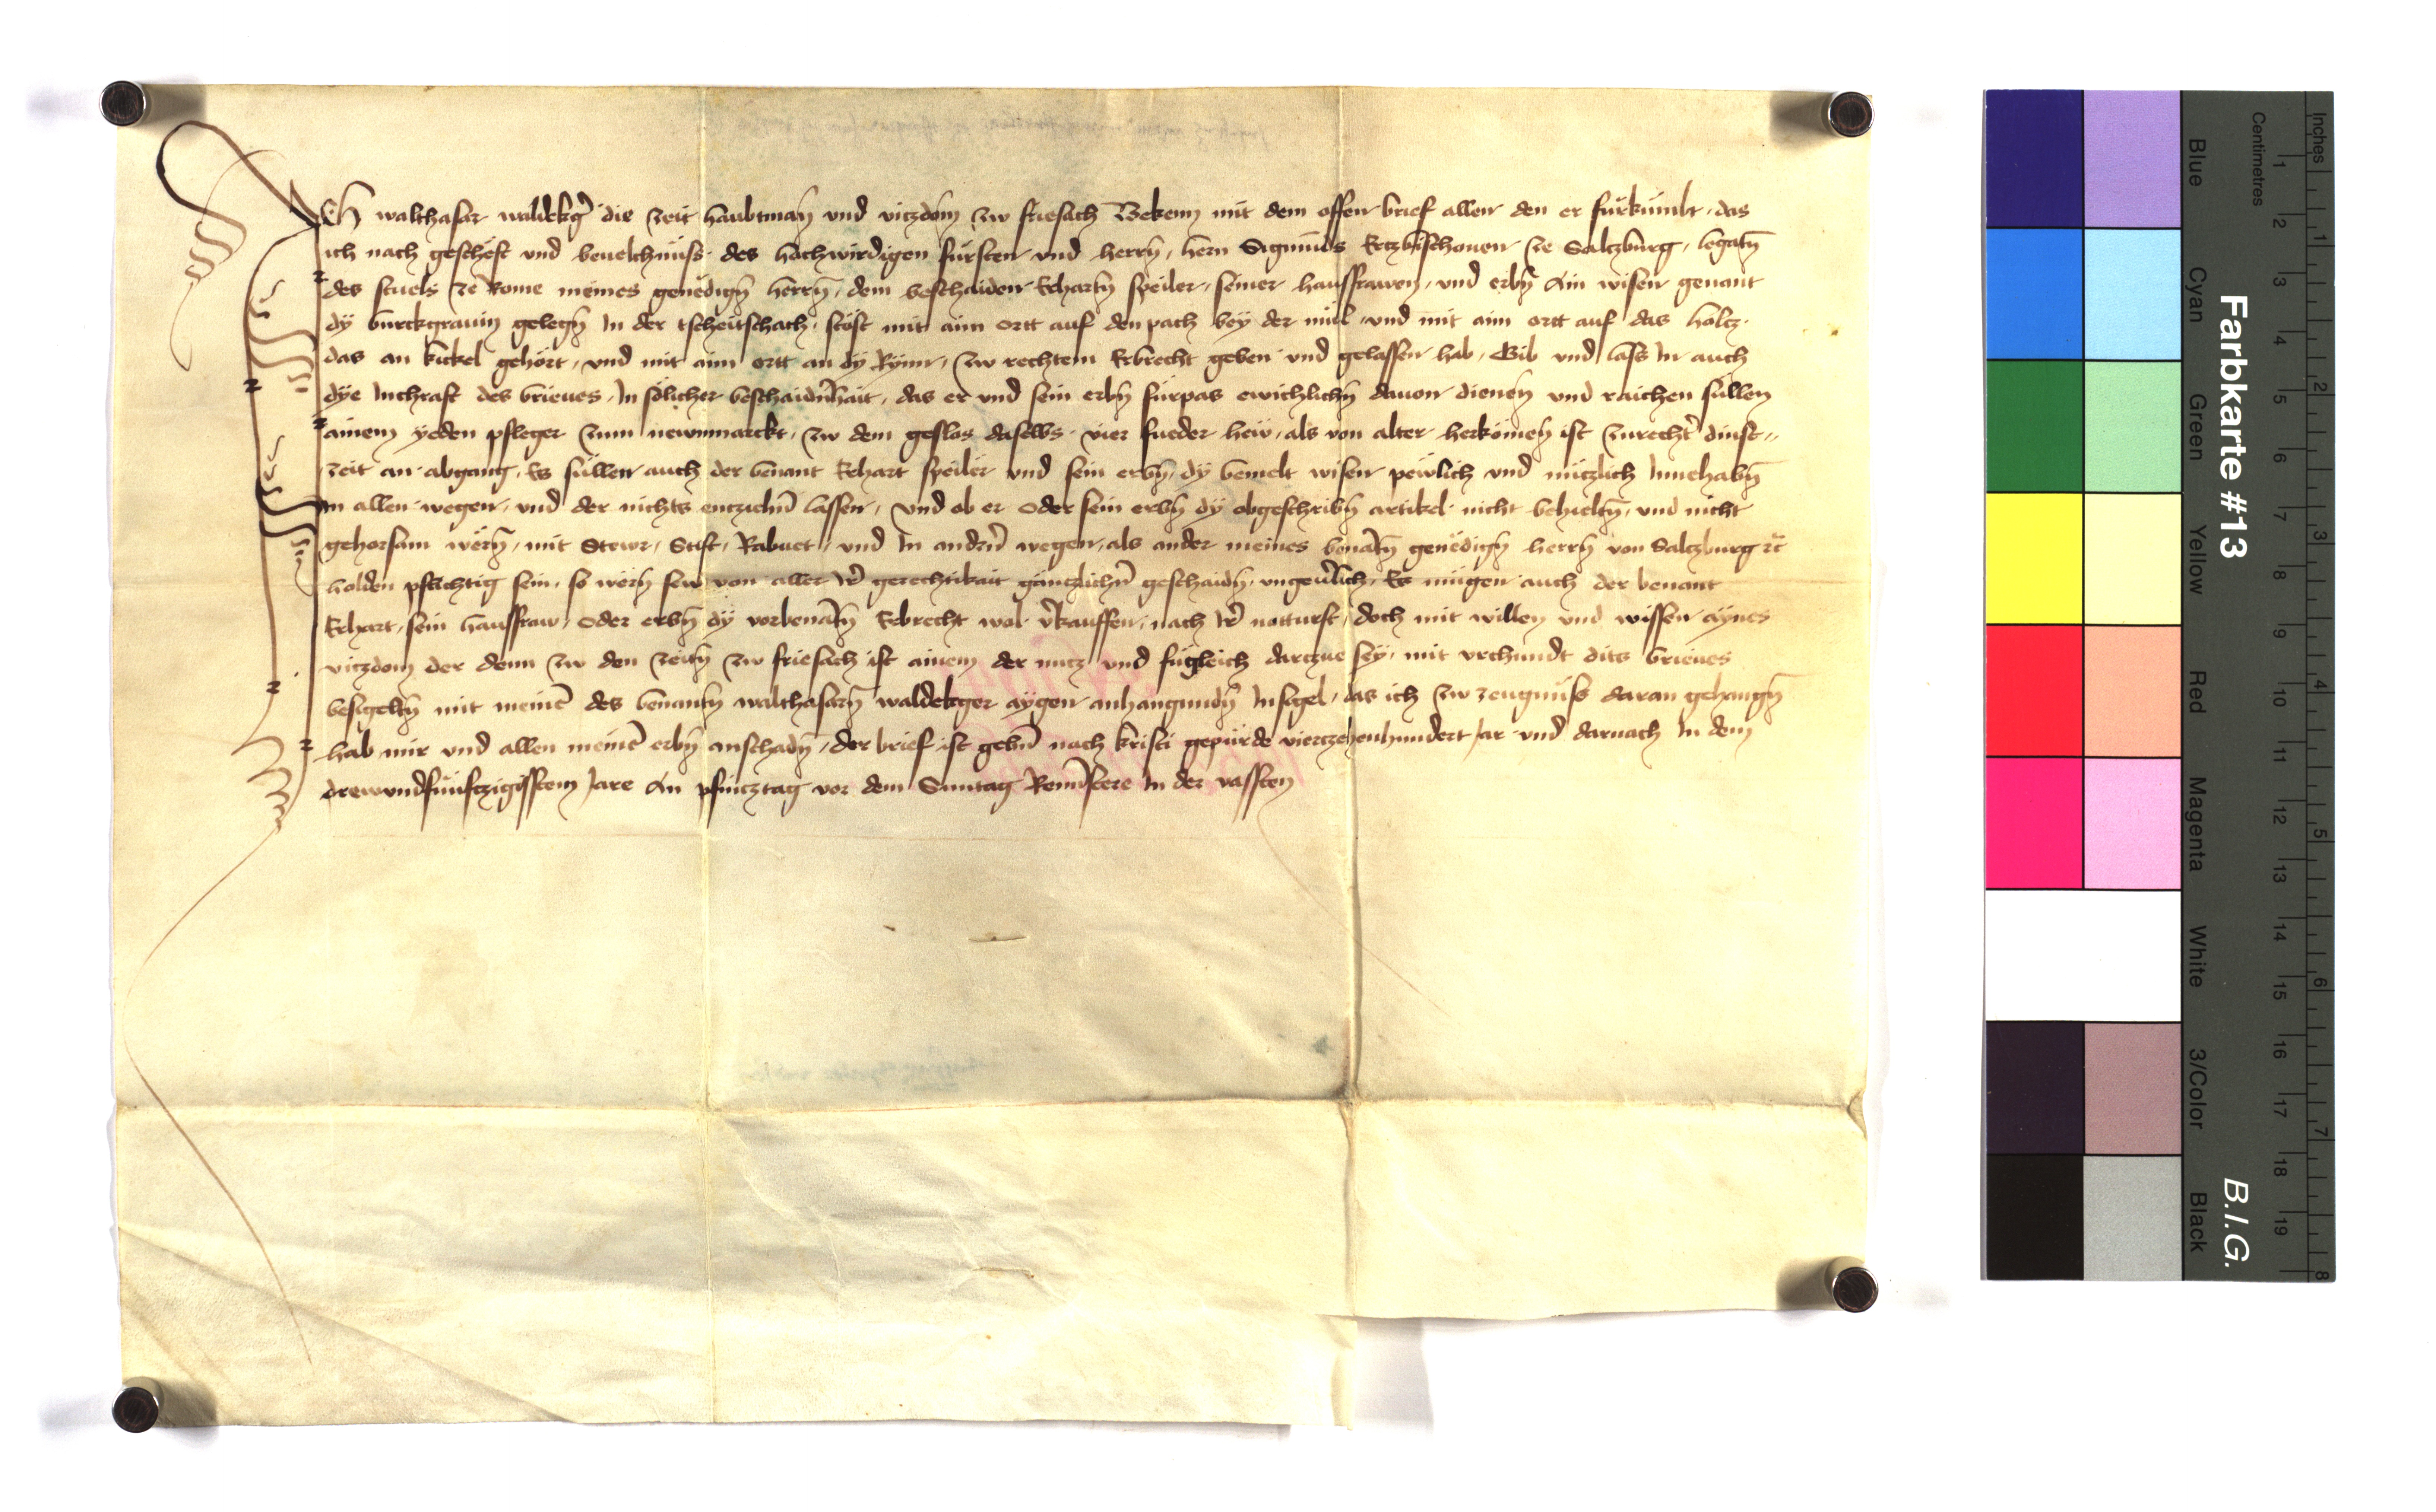 Ich walthasar waldekgͤr die zeit haubtman̄ und vitzdom̄ zw friesach Bekenn mit dem offen brief allen den er fürkumbt, das
ich nach geschëft und beuelchnüss des hochwirdigen fürsten und herrn̄, hern Sigmūds Ertzbischouen ze Saltzburg, legatn̄
des stuels ze Rome meines genëdign̄ herrn̄, dem beschaiden Erhartn̄ speiler, seiner hausfrawen, und erbn̄ Ain wisen genant
dÿ burckgrauin gelegn̄ In der tscheitschach, stöst mit aim ortt auf den pach beÿ der mül, und mit aim ortt auf das holtz,
das an kickel gehört, und mit aim ortt an dÿ Rÿnn, zw rechtem Erbrecht geben und gelassen hab, Gib und lass In auch
dÿe Inchraft des brieues, In sölicher beschaidn̄hait, das er und sein erbn̄ fürpas ewichlichn̄ dauon dienen̄ und raichen süllen
ainem ÿeden pfleger zum newnmarckt, zw dem gslos daselbs vier fueder hew, als von alter herkömen̄ ist zurechtr̄ dinst
zeit an abgang, Es süllen auch der benant Erhart speiler und sein erbn̄, dÿ bemelt wisen pewlich und nützlich Innehabn̄
In allen wegen, und der nichts entziehn̄ lassen, und ob er oder sein erbn̄ dÿ obgeschribn̄ artikel nicht behieltn̄, und nicht
gehorsam wërn̄, mit Stewr, Stift, Rabuet, und In andrn̄ wegen, als ander meines benātn̄ genëdign̄ herrn̄ von Saltzburg ꝛc̄
holden pflichtig sein, so wërn̄ sew von aller Ir̄ gerechtikait gäntzlichn̄ geschaidn̄, ungeuërlich, Es mügen auch der benant
Erhart, sein hausfraw, oder erbn̄ dÿ vorbenātn̄ Erbrecht wol v̄kauffen, nach Ir̄ notturft, doch mit willen und wissen aÿnes
vitzdom der denn zw den zeitn̄ zw friesach ist ainem der nutz und fügleich dartzue seÿ, mit vrchundt dits brieues
besigeltn̄ mit meinē des benantn̄ walthasarn̄ waldekger aÿgen anhangundn̄ Insigel, das ich zw zeugnüss daran gehangn̄
hab mir und allen meinē erbn̄ anschadn̄, der brief ist gebn̄ nach kristi gepürde viertzehenhundert Jar und darnach In dem
drewundfünftzigisstem Jare An pfintztag vor dem Suntag Reminiscere In der vassten
Farbkarte #13
B.I.G.
Blue
Cyan
Green
Yellow
Red
Magenta
White
3/Color
Black
Centimetres
1 2 3 4 5 6 7 8 9 10 11 12 13 14 15 16 17 18 19
Inches
1 2 3 4 5 6 7 8